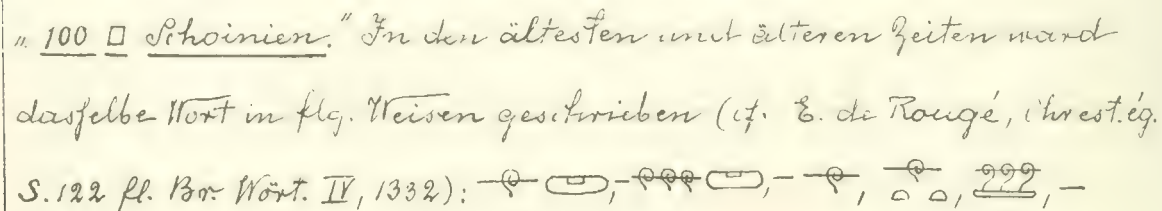 „100 □ Schoinien.” In den ältesten und älteren Zeiten ward
dasselbe Wort in flg. Weisen geschrieben (cf. E. de Rougé, chrest. ég.
S. 122 fl. Br. Wört. IV, 1332):